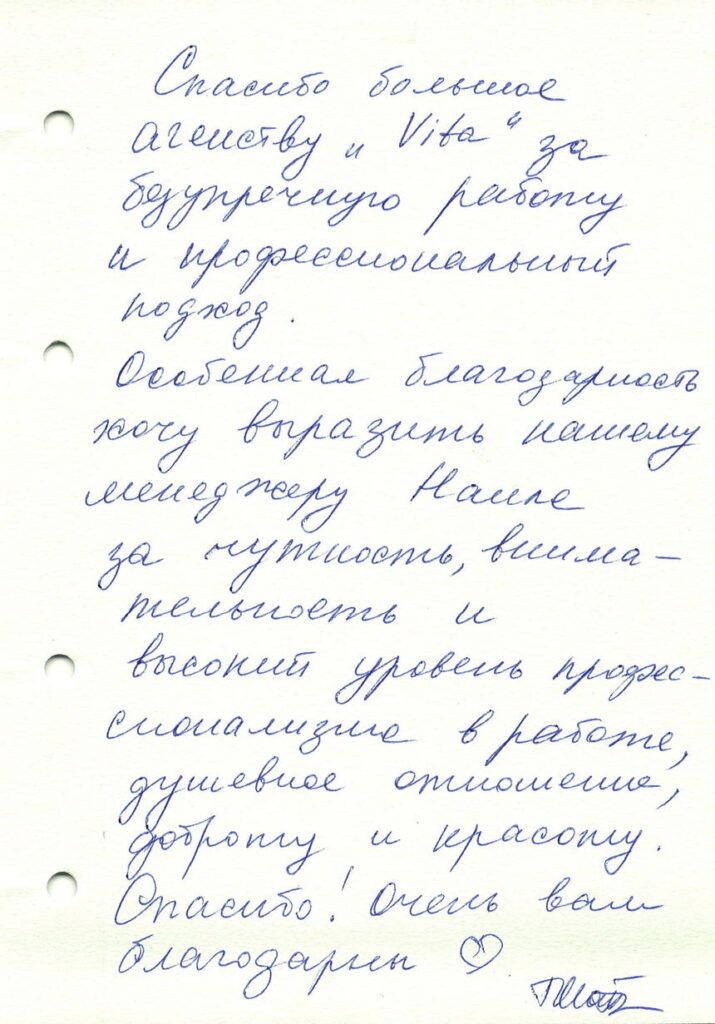 Спасибо большое
агенству „Vita“ за
безупречную работу
и профессиональный
подход.
Особенная благодарность
хочу выразить нашему
менеджеру Наиле
за чуткость, внима-
тельность и
высокий уровень профес-
сионализма в работе,
душевное отношение,
доброту и красоту.
Спасибо! Очень вам
благодарны ♡